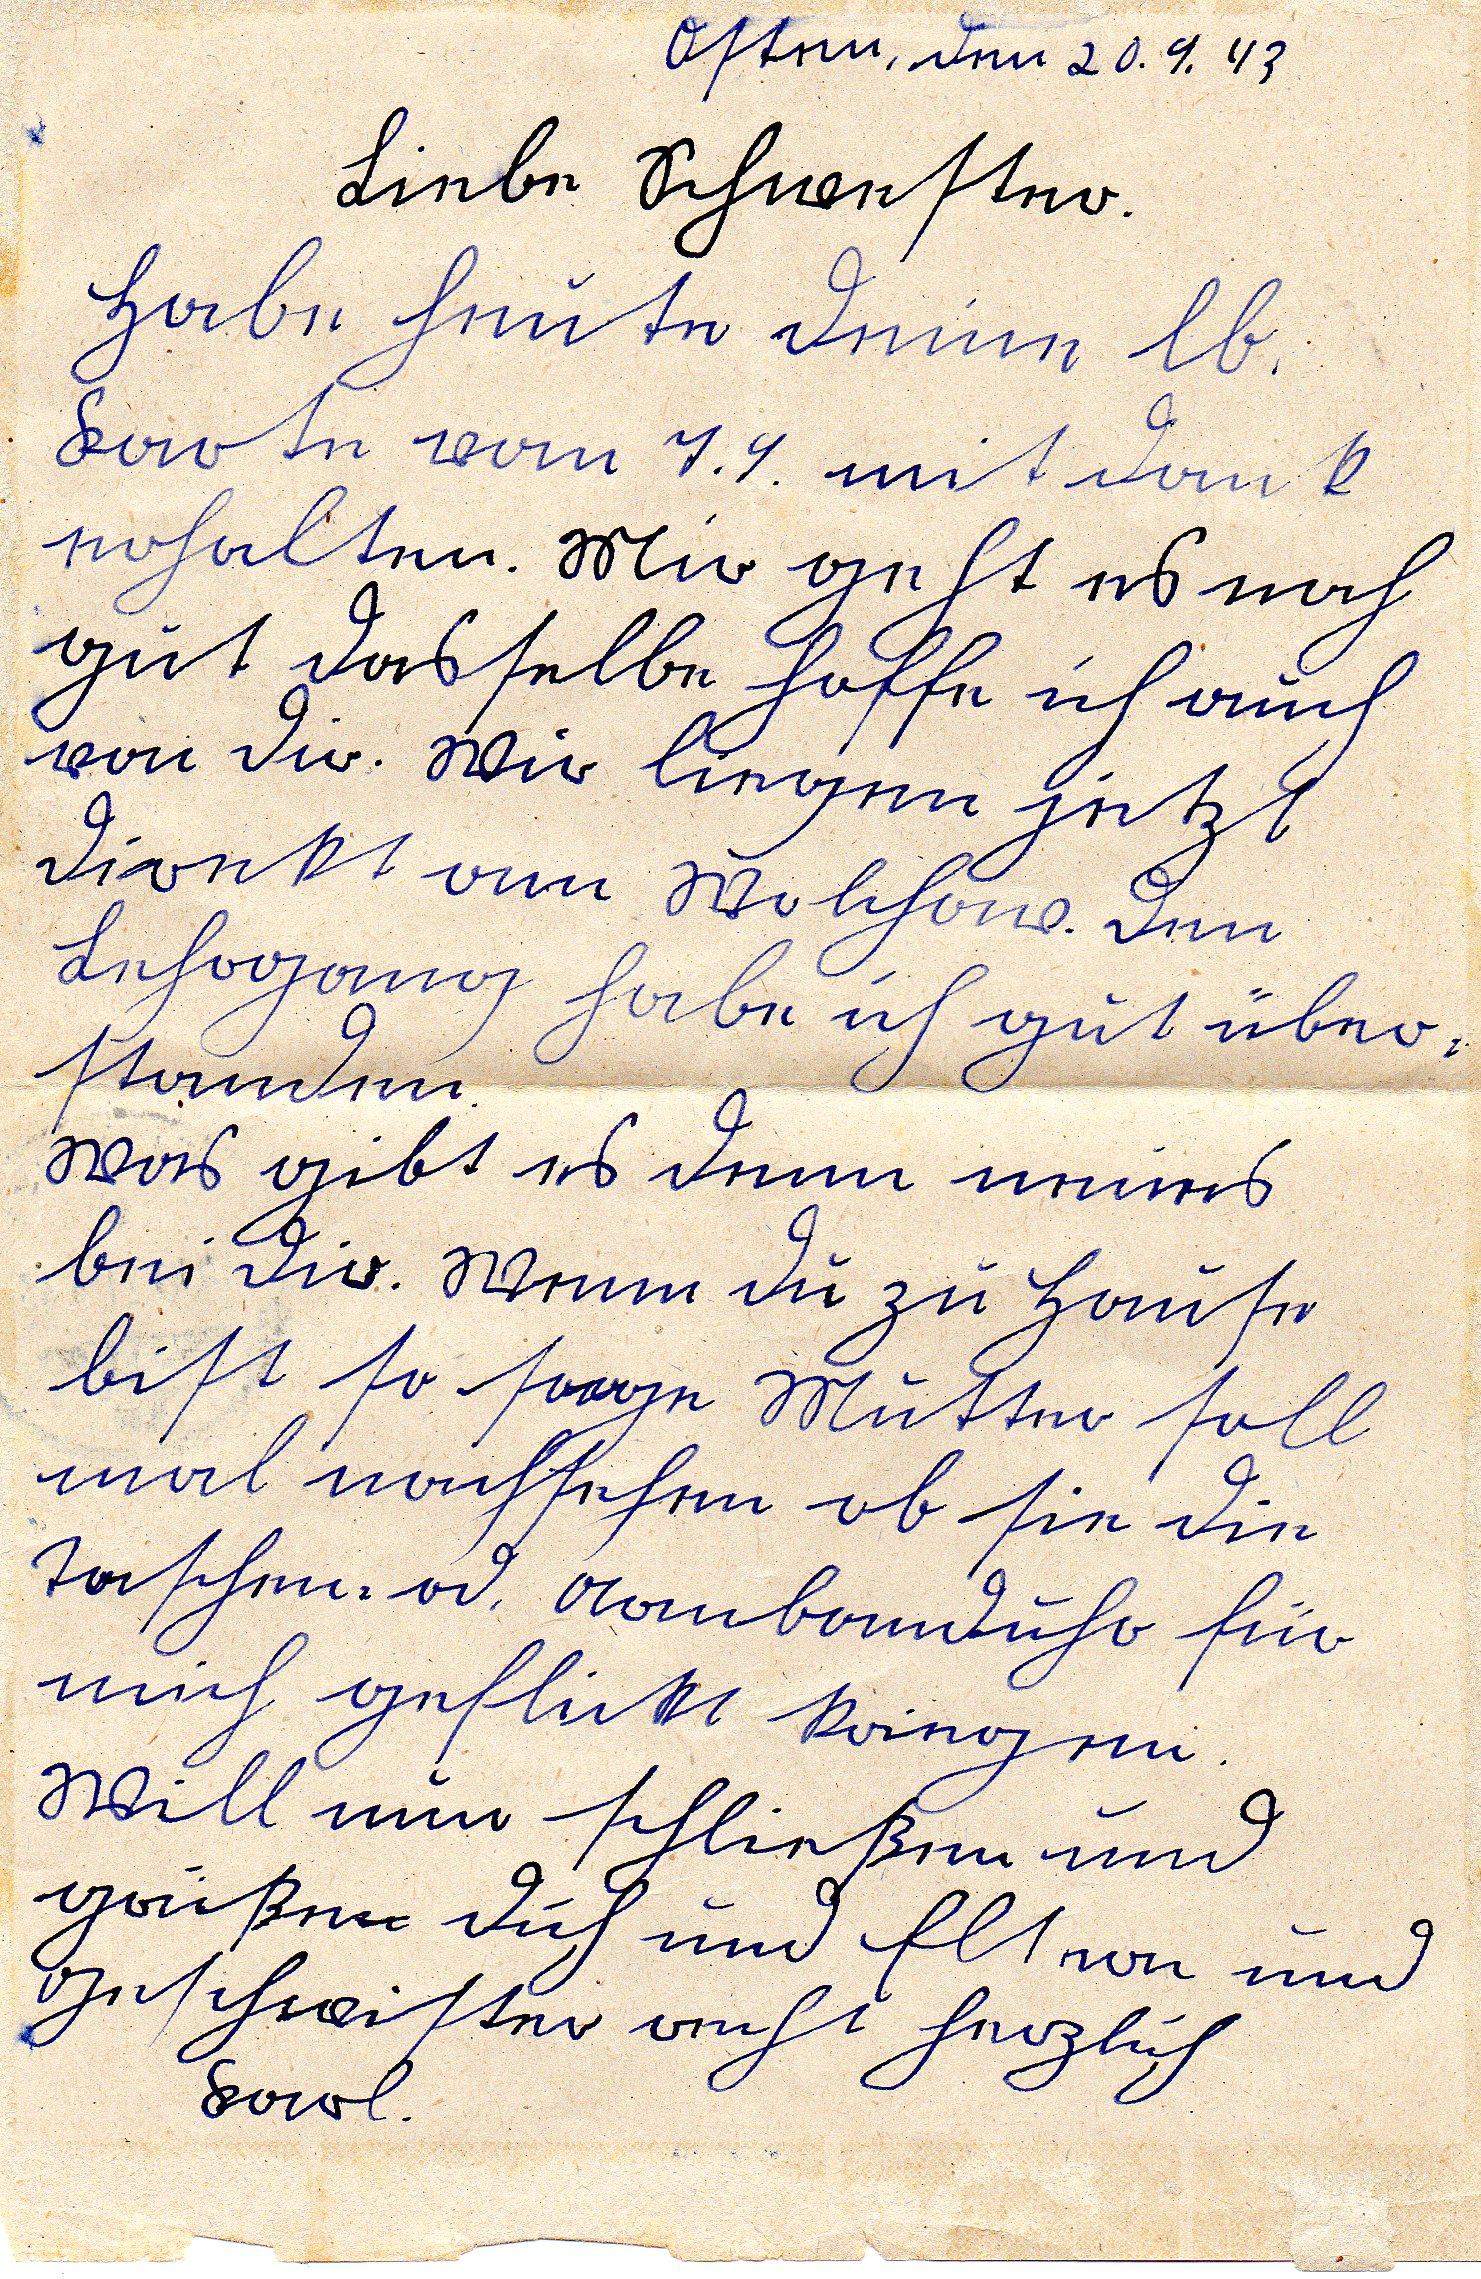 Osten, den 20.9.43
Liebe Schwester.
Habe heute deine lb.
Karte vom 7.9. mit dank
erhalten. Mir geht es noch
gut dasselbe hoffe ich auch
von dir. Wir liegen jetzt
direkt am Wolchow. Den
Lehrgang habe ich gut über-
standen.
Was gibt es denn neues
bei dir. Wenn du zu Hause
bist so sage Mutter soll
mal nachsehen ob sie die
Taschen- od. Armbanduhr für
mich geflickt kriegen.
Will nun schließen und
grüßen dich und Eltern und
Geschwister recht herzlich
Karl.